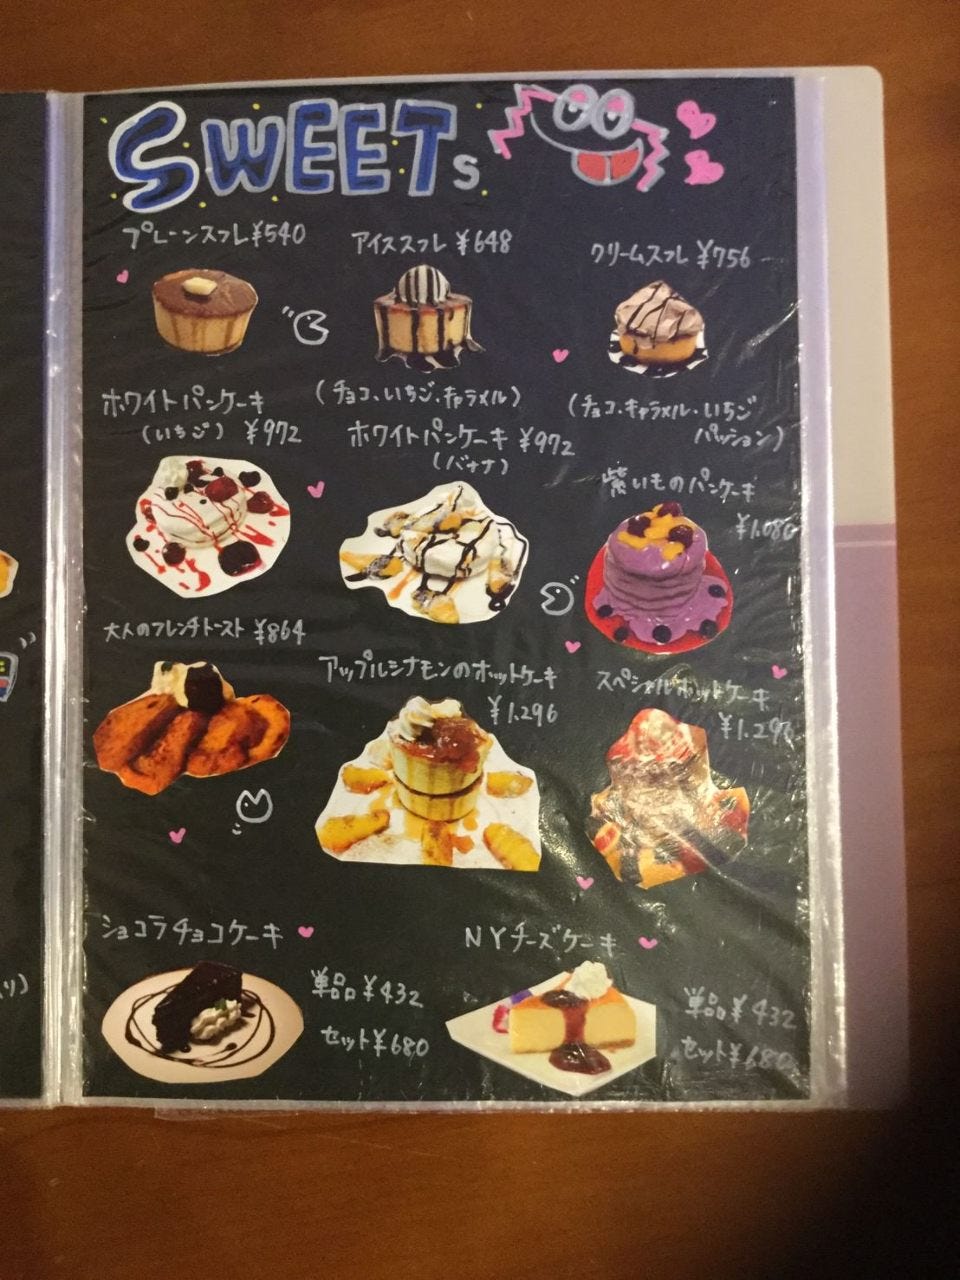 SWEETs
プレーンスフレ ¥540
アイススフレ ¥648
(チョコ、いちご、キャラメル)
クリームスフレ ¥756
(チョコ、キャラメル、いちご
パッション)
ホワイトパンケーキ
(いちご) ¥972
ホワイトパンケーキ ¥972
(バナナ)
紫いものパンケーキ
¥1,080
大人のフレンチトースト ¥864
アップルシナモンのホットケーキ
¥1,296
スペシャルホットケーキ
¥1,296
ショコラチョコケーキ
単品 ¥432
セット ¥680
NYチーズケーキ
単品 ¥432
セット ¥680